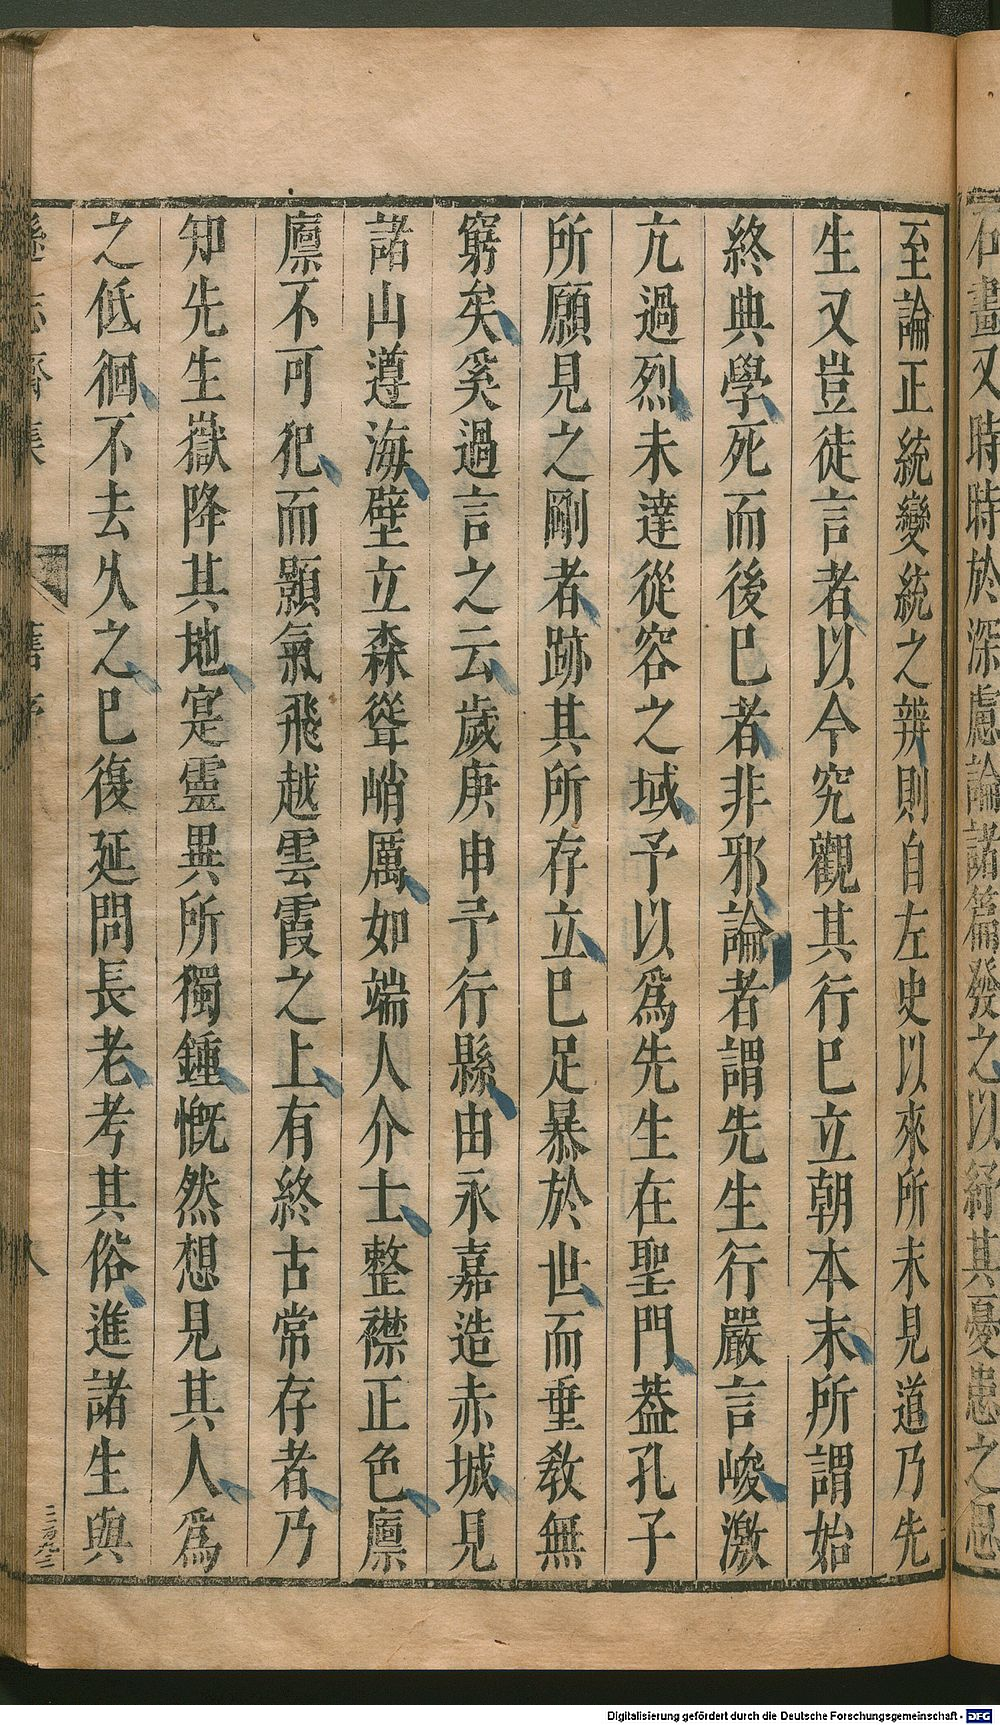 石畫又時時於深慮論諸篇發之以紓其憂患之思
至論正統變統之辨則自左史以來所未見道乃先
生又豈徒言者以今究觀其行巳立朝本末所謂始
終典學死而後巳者非邪論者謂先生行嚴言峻激
亢過烈未達從容之域予以爲先生在聖門葢孔子
所願見之剛者跡其所存立巳足暴於世而垂敎無
窮矣奚過言之云歲庚申予行縣由永嘉造赤城見
諸山遵海壁立森聳峭厲如端人介士整襟正色廪
廪不可犯而顥氣飛越雲霞之上有終古常存者乃
知先生嶽降其地寔靈異所獨鍾慨然想見其人爲
之低徊不去乆之巳復延問長老考其俗進諸生與
遜志齋集 舊序 八
Digitalisierung gefördert durch die Deutsche Forschungsgemeinschaft - DFG